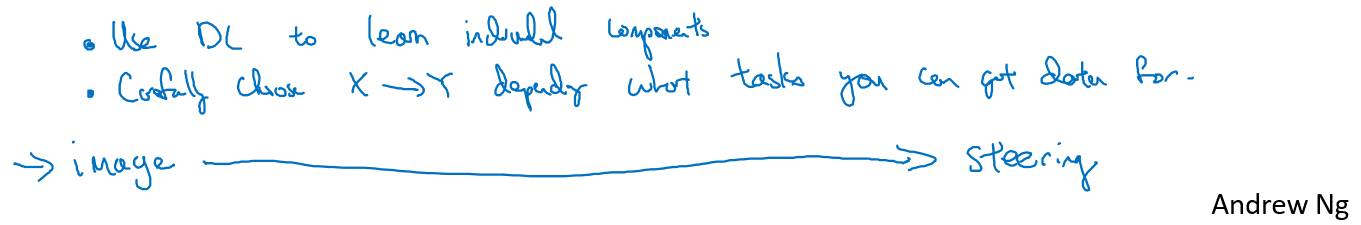 • Use DL to learn individual components
• Carefully choose X → Y depending what tasks you can get data for.
→ image → steering
Andrew Ng